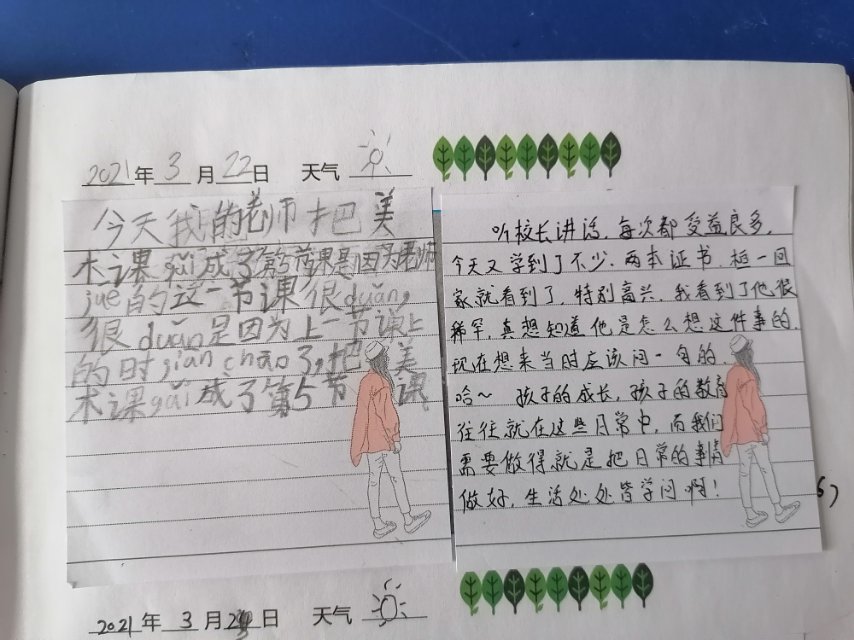 2021年3月22日 天气
今天我的老师把美
术课gǎi成了第5节课是因为老师
jue的这一节课很duǎn,
很duǎn是因为上一节课上
的时jiān chāo了,把美
术课gǎi成了第5节课
听校长讲话,每次都受益良多,
今天又学到了不少.两本证书,桓一回
家就看到了,特别高兴,我看到了他很
稀罕,真想知道他是怎么想这件事的.
现在想来当时应该问一句的.
哈~ 孩子的成长,孩子的教育
往往就在这些日常中,而我们
需要做得就是把日常的事情
做好,生活处处皆学问啊!
2021年3月24日 天气